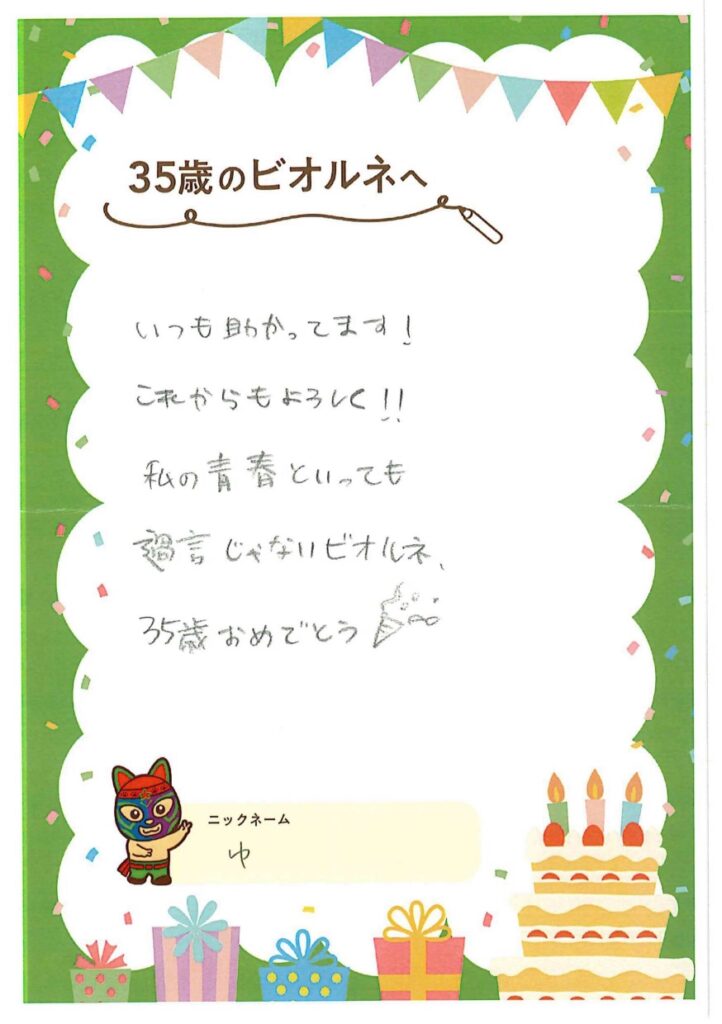 35歳のビオルネへ
いつも助かってます!
これからもよろしく!!
私の青春といっても
過言じゃないビオルネ、
35歳おめでとう
ニックネーム
ゆ